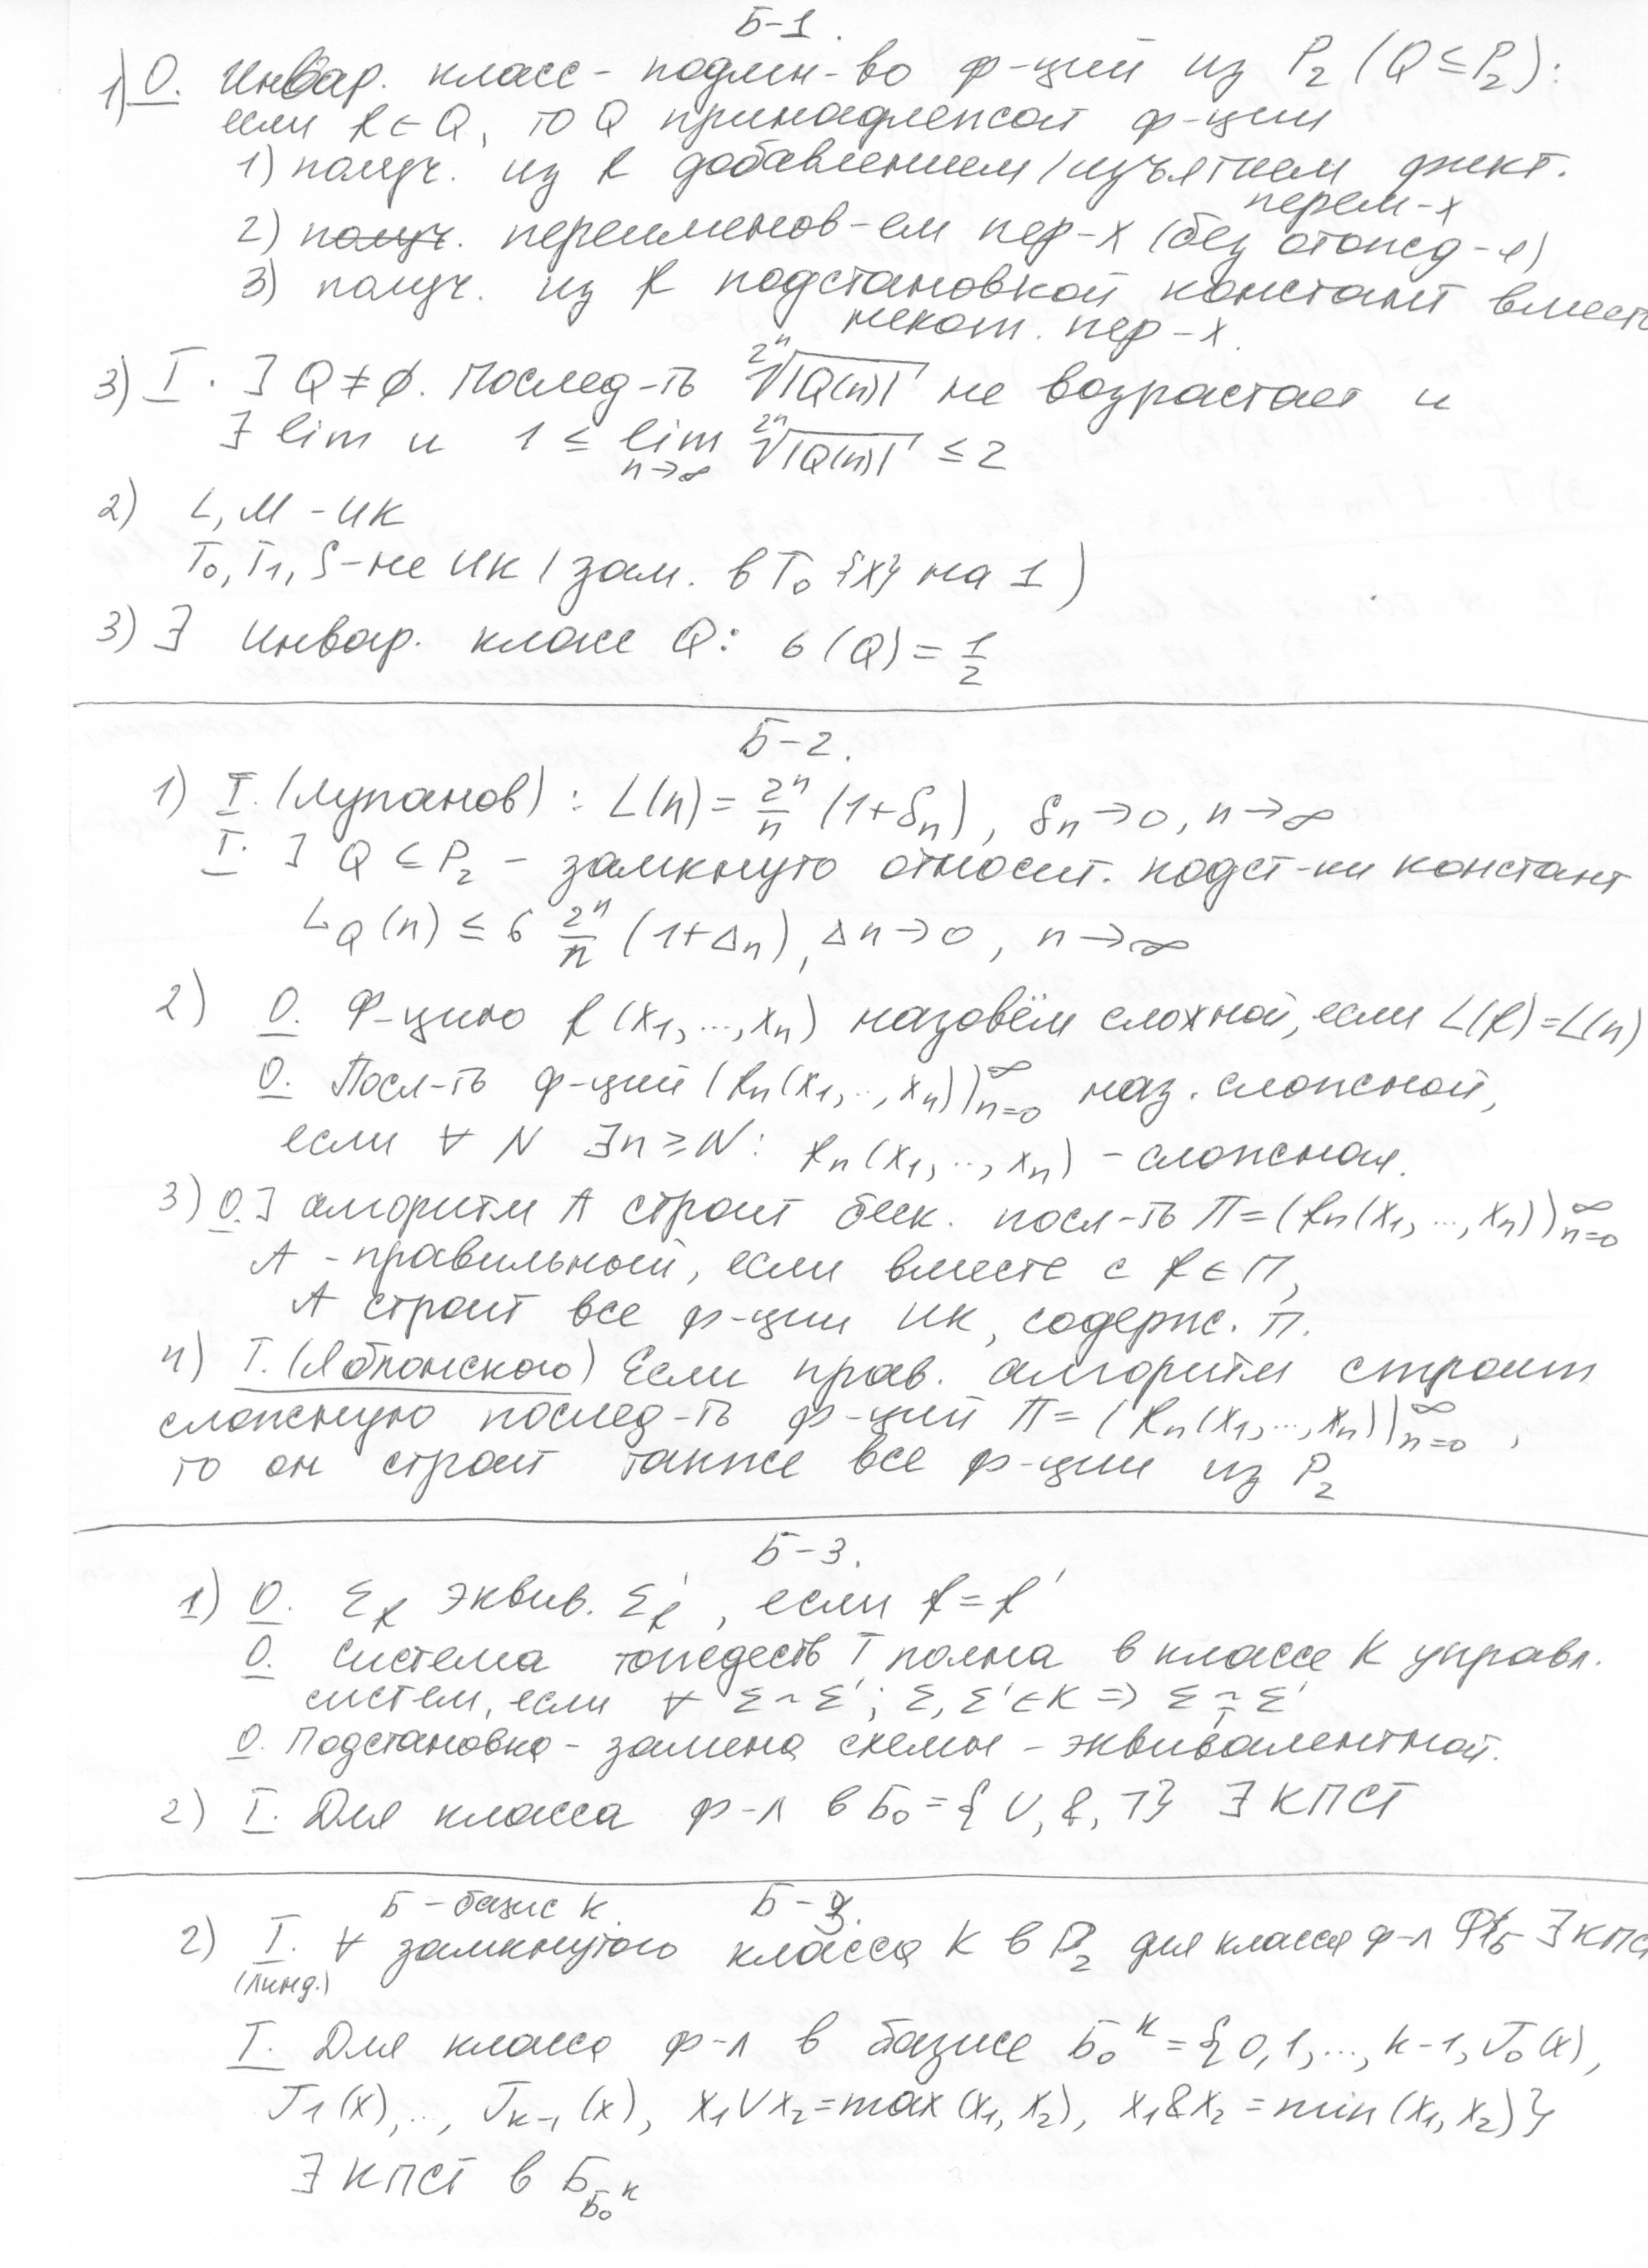 Б-1.
1) О. Инвар. класс - подмн-во ф-ций из P₂ (Q ⊆ P₂):
если f ∈ Q, то Q принадлежат ф-ции
1) получ. из f добавлением/изъятием фикт.
перем-х
2) получ. переименов-ем пер-х (без отожд-я)
3) получ. из f подстановкой констант вместо
некот. пер-х.
3) Т. ] Q ≠ ∅. Послед-ть ^{2^n}√|Q(n)| не возрастает и
∃ lim и 1 ≤ lim_{n→∞} ^{2^n}√|Q(n)| ≤ 2
2) L, M - ИК
T₀, T₁, S - не ИК (зам. в T₀ {x} на 1)
3) ∃ Инвар. класс Q: б(Q) = 1/2
Б-2.
1) Т. (Лупанов): L(n) = 2^n/n (1+δ_n), δ_n → 0, n → ∞
Т. ] Q ⊆ P₂ - замкнуто относит. подст-ки констант
L_Q(n) ≤ б 2^n/n (1+Δ_n), Δn → 0, n → ∞
2) О. Ф-цию f(x₁, ..., x_n) назовём сложной, если L(f) = L(n)
О. Посл-ть ф-ций (f_n(x₁, .., x_n))_{n=0}^∞ наз. сложной,
если ∀ N ∃n ≥ N: f_n(x₁, .., x_n) - сложная.
3) О. ] алгоритм A строит беск. посл-ть П = (f_n(x₁, ..., x_n))_{n=0}^∞
A - правильный, если вместе с f ∈ П,
A строит все ф-ции ИК, содерж. П.
4) Т. (Яблонского) Если прав. алгоритм строит
сложную послед-ть ф-ций П = (f_n(x₁, ..., x_n))_{n=0}^∞,
то он строит также все ф-ции из P₂
Б-3.
1) О. Σ_f эквив. Σ'_f', если f = f'
О. Система тождеств T полна в классе K управл.
систем, если ∀ Σ ~ Σ'; Σ, Σ' ∈ K ⇒ Σ ~_T Σ'
О. Подстановка - замена схемы - эквивалентной.
2) Т. Для класса ф-л в Б₀ = {∨, &, ¬} ∃ КПСТ
Б - базис K. Б-3.
2) Т. ∀ замкнутого класса K в P₂ для класса ф-л Ф_Б ∃ КПС
(Линд.)
Т. Для класса ф-л в базисе Б₀^k = {0, 1, ..., k-1, J₀(x),
J₁(x), .., J_{k-1}(x), x₁∨x₂ = max(x₁, x₂), x₁&x₂ = min(x₁, x₂)}
∃ КПСТ в Б_{Б₀^k}